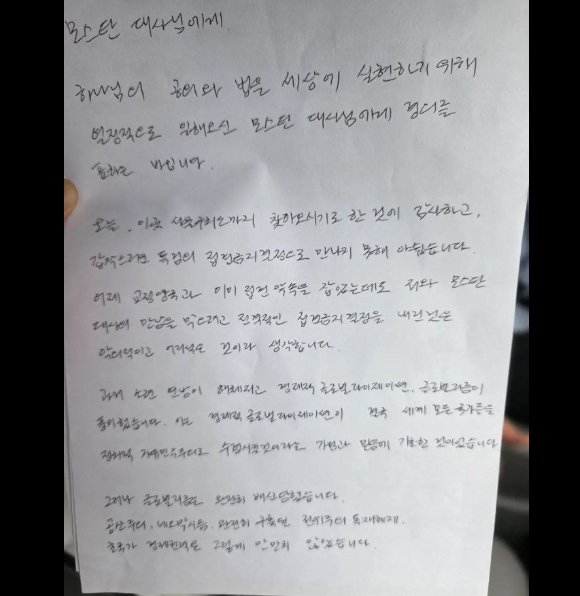 모스탄 대사님에게.
하나님의 공의와 법을 세상에 실현하기 위해
열정적으로 일해오신 모스탄 대사님에게 경의를
표하는 바입니다.
오늘, 이곳 서울구치소까지 찾아오시기로 한 것에 감사하고,
갑작스러운 특검의 접견금지결정으로 만나지 못해 아쉽습니다.
어제 교정당국과 이미 접견 약속을 잡았는데도 저와 모스탄
대사의 만남을 막으려고 전격적인 접견금지결정을 내린 것은
악의적이고 어리석은 것이라 생각합니다.
과거 소련 연방이 해체되고 경제적 글로벌라이제이션, 글로벌리즘이
풍미했습니다. 이는 경제적 글로벌라이제이션이 전 세계 모든 국가들을
정치적 자유민주주의로 수렴시킬 것이라는 가정과 믿음에 기초한 것이었습니다.
그러나 글로벌리즘은 완전히 배신당했습니다.
공산주의, 완전히 구축된 전체주의 독재체제,
그렇게 만만치 않았습니다.